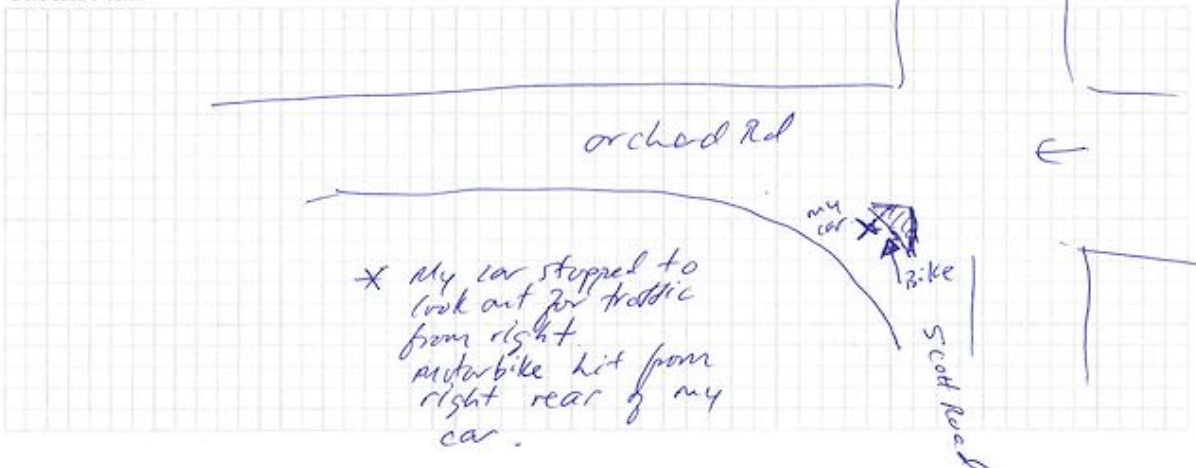 orchad Rd
←
my
car. X
Bike
* My car stopped to
look out for traffic
from right.
motorbike hit from
right rear of my
car.
Scott Road